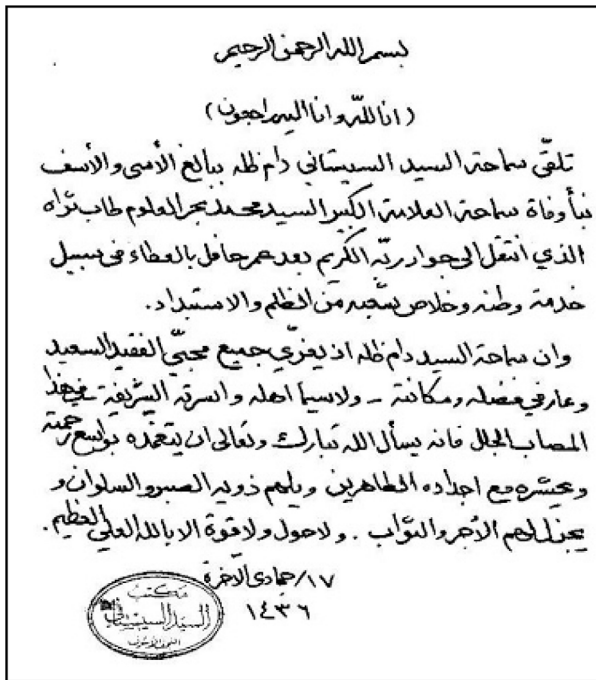 بسم الله الرحمن الرحيم
(انا لله وانا اليه راجعون)
تلقّى سماحة السيد السيستاني دام ظله ببالغ الأسى والأسف
نبأ وفاة سماحة العلامة الكبير السيد محمد بحر العلوم طاب ثراه
الذي انتقل الى جوار ربّه الكريم بعد عمر حافل بالعطاء في سبيل
خدمة وطنه وخلاص شعبه من الظلم والاستبداد.
وان سماحة السيد دام ظله اذ يعزّي جميع محبّي الفقيد السعيد
وعارفي فضله ومكانته - ولاسيما اهله واسرته الشريفة - في هذا
المصاب الجلل فانه يسأل الله تبارك وتعالى ان يتغمّده بواسع رحمته
ويحشره مع اجداده الطاهرين ويلهم ذويه الصبر والسلوان و
يجزل لهم الأجر والثواب . ولاحول ولاقوة الا بالله العلي العظيم.
١٧/جمادى الآخرة
١٤٣٦
مكتب
السيد السيستاني
النجف الأشرف